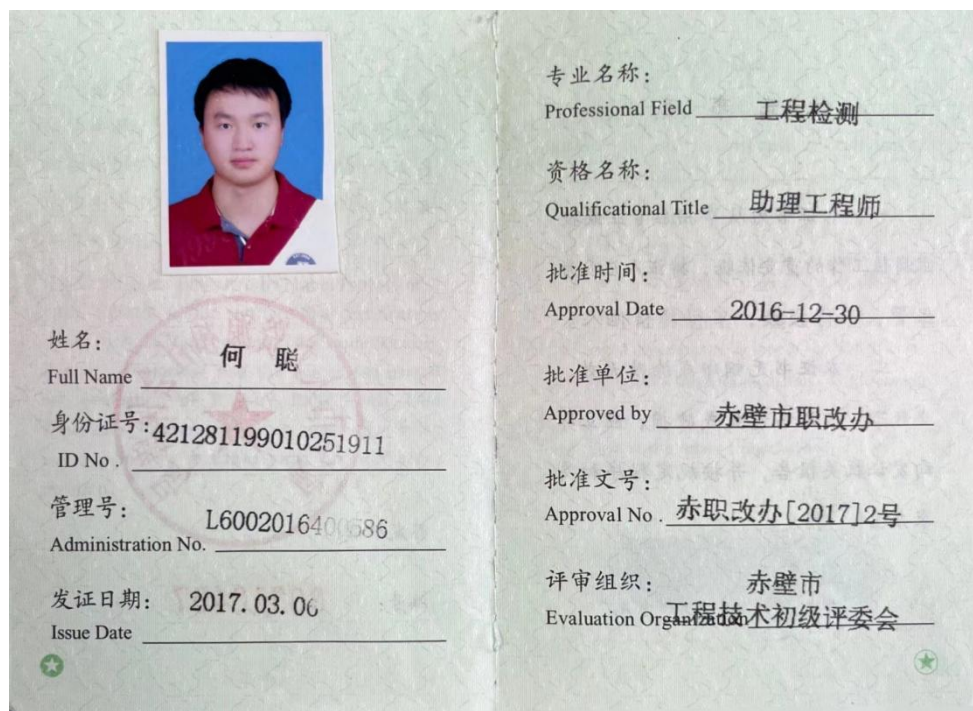 姓名：
何 聪
Full Name
身份证号：
421281199010251911
ID No .
管理号：
L6002016400586
Administration No.
发证日期：
2017.03.06
Issue Date
专业名称：
Professional Field 工程检测
资格名称：
Qualificational Title 助理工程师
批准时间：
Approval Date 2016-12-30
批准单位：
Approved by 赤壁市职改办
批准文号：
Approval No . 赤职改办[2017]2号
评审组织： 赤壁市
Evaluation Organization 工程技术初级评委会